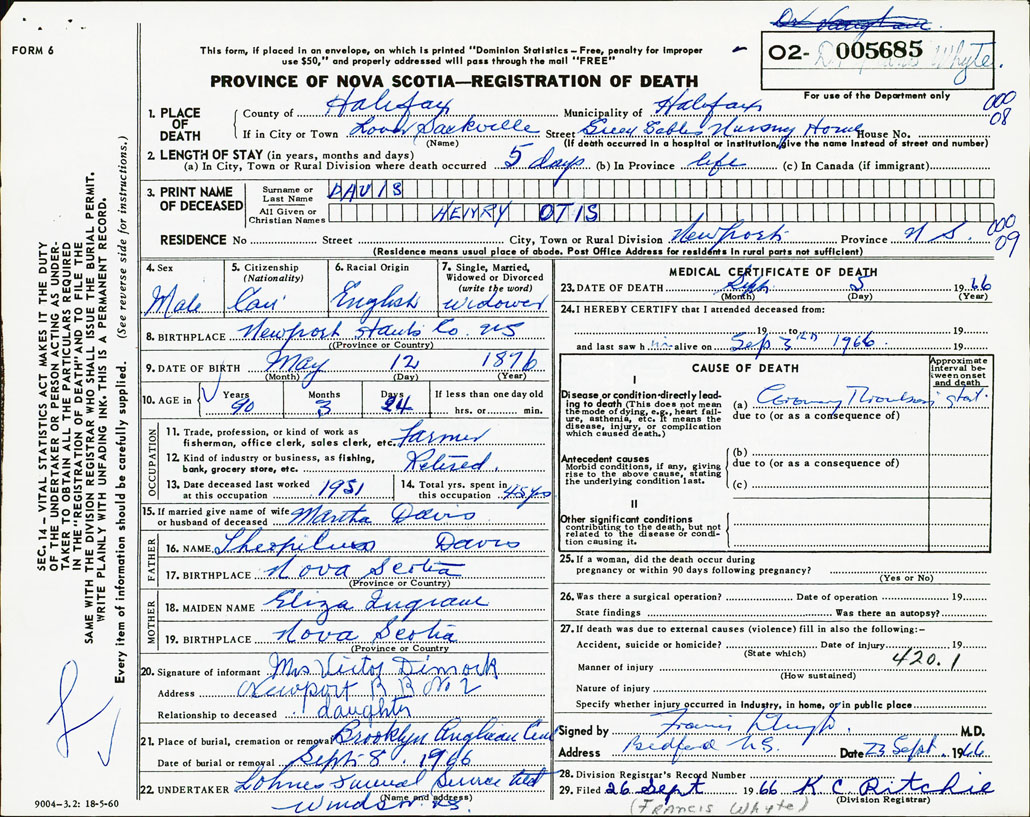 FORM 6
This form, if placed in an envelope, on which is printed "Dominion Statistics – Free, penalty for improper
use $50," and properly addressed will pass through the mail "FREE"
PROVINCE OF NOVA SCOTIA—REGISTRATION OF DEATH
02- 005685
Whyte.
For use of the Department only
000
08
1. PLACE OF DEATH
County of Halifax Municipality of Halifax
If in City or Town Lower Sackville Street Green Gables Nursing Home House No.
(Name) (If death occurred in a hospital or institution, give the name instead of street and number)
2. LENGTH OF STAY (in years, months and days)
(a) In City, Town or Rural Division where death occurred 5 days (b) In Province life (c) In Canada (if immigrant)
3. PRINT NAME OF DECEASED
Surname or Last Name DAVIS
All Given or Christian Names HENRY OTIS
000
09
RESIDENCE No Street City, Town or Rural Division Newport Province N S.
(Residence means usual place of abode. Post Office Address for residents in rural parts not sufficient)
4. Sex Male
5. Citizenship (Nationality) Can
6. Racial Origin English
7. Single, Married, Widowed or Divorced (write the word) Widower
8. BIRTHPLACE Newport Hants Co. NS
(Province or Country)
9. DATE OF BIRTH May 12 1876
(Month) (Day) (Year)
10. AGE in Years 90 Months 3 Days 24 If less than one day old hrs. or min.
OCCUPATION
11. Trade, profession, or kind of work as fisherman, office clerk, sales clerk, etc. Farmer
12. Kind of industry or business, as fishing, bank, grocery store, etc. Retired.
13. Date deceased last worked at this occupation 1951
14. Total yrs. spent in this occupation 45 yrs
15. If married give name of wife or husband of deceased Martha Davis
FATHER
16. NAME Davis
17. BIRTHPLACE Nova Scotia
(Province or Country)
MOTHER
18. MAIDEN NAME Eliza Ingram
19. BIRTHPLACE Nova Scotia
(Province or Country)
20. Signature of informant Mrs Victor Dimock
Address Newport R R No 2
Relationship to deceased daughter
21. Place of burial, cremation or removal Brooklyn Anglican Cem
Date of burial or removal Sept 8 1966
22. UNDERTAKER Lohnes Funeral Service Ltd
(Name and address)
Windsor NS.
9004-3.2: 18-5-60
MEDICAL CERTIFICATE OF DEATH
23. DATE OF DEATH Sept. 5 1966
(Month) (Day) (Year)
24. I HEREBY CERTIFY that I attended deceased from:
19 to 19
and last saw h im alive on Sep 3rd 1966 19
CAUSE OF DEATH
Approximate interval between onset and death
I
Disease or condition directly leading to death (This does not mean the mode of dying, e.g., heart failure, asthenia, etc. It means the disease, injury, or complication which caused death.)
(a) Coronary Thrombosis stat.
due to (or as a consequence of)
Antecedent causes
Morbid conditions, if any, giving rise to the above cause, stating the underlying condition last.
(b)
due to (or as a consequence of)
(c)
II
Other significant conditions
contributing to the death, but not related to the disease or condition causing it.
25. If a woman, did the death occur during pregnancy or within 90 days following pregnancy?
(Yes or No)
26. Was there a surgical operation? Date of operation 19
State findings Was there an autopsy?
27. If death was due to external causes (violence) fill in also the following:–
Accident, suicide or homicide? Date of injury 19
(State which)
420.1
Manner of injury
(How sustained)
Nature of injury
Specify whether injury occurred in industry, in home, or in public place
Signed by Francis M.D.
Address Bedford N.S. Date 23 Sept. 1966
28. Division Registrar's Record Number
29. Filed 26 Sept 1966 K C Ritchie
(Division Registrar)
(FRANCIS Whyte)
SEC. 14 – VITAL STATISTICS ACT MAKES IT THE DUTY
OF THE UNDERTAKER OR PERSON ACTING AS UNDER-
TAKER TO OBTAIN ALL THE PARTICULARS REQUIRED
IN THE "REGISTRATION OF DEATH" AND TO FILE THE
SAME WITH THE DIVISION REGISTRAR WHO SHALL ISSUE THE BURIAL PERMIT.
WRITE PLAINLY WITH UNFADING INK. THIS IS A PERMANENT RECORD.
Every item of information should be carefully supplied. (See reverse side for instructions.)